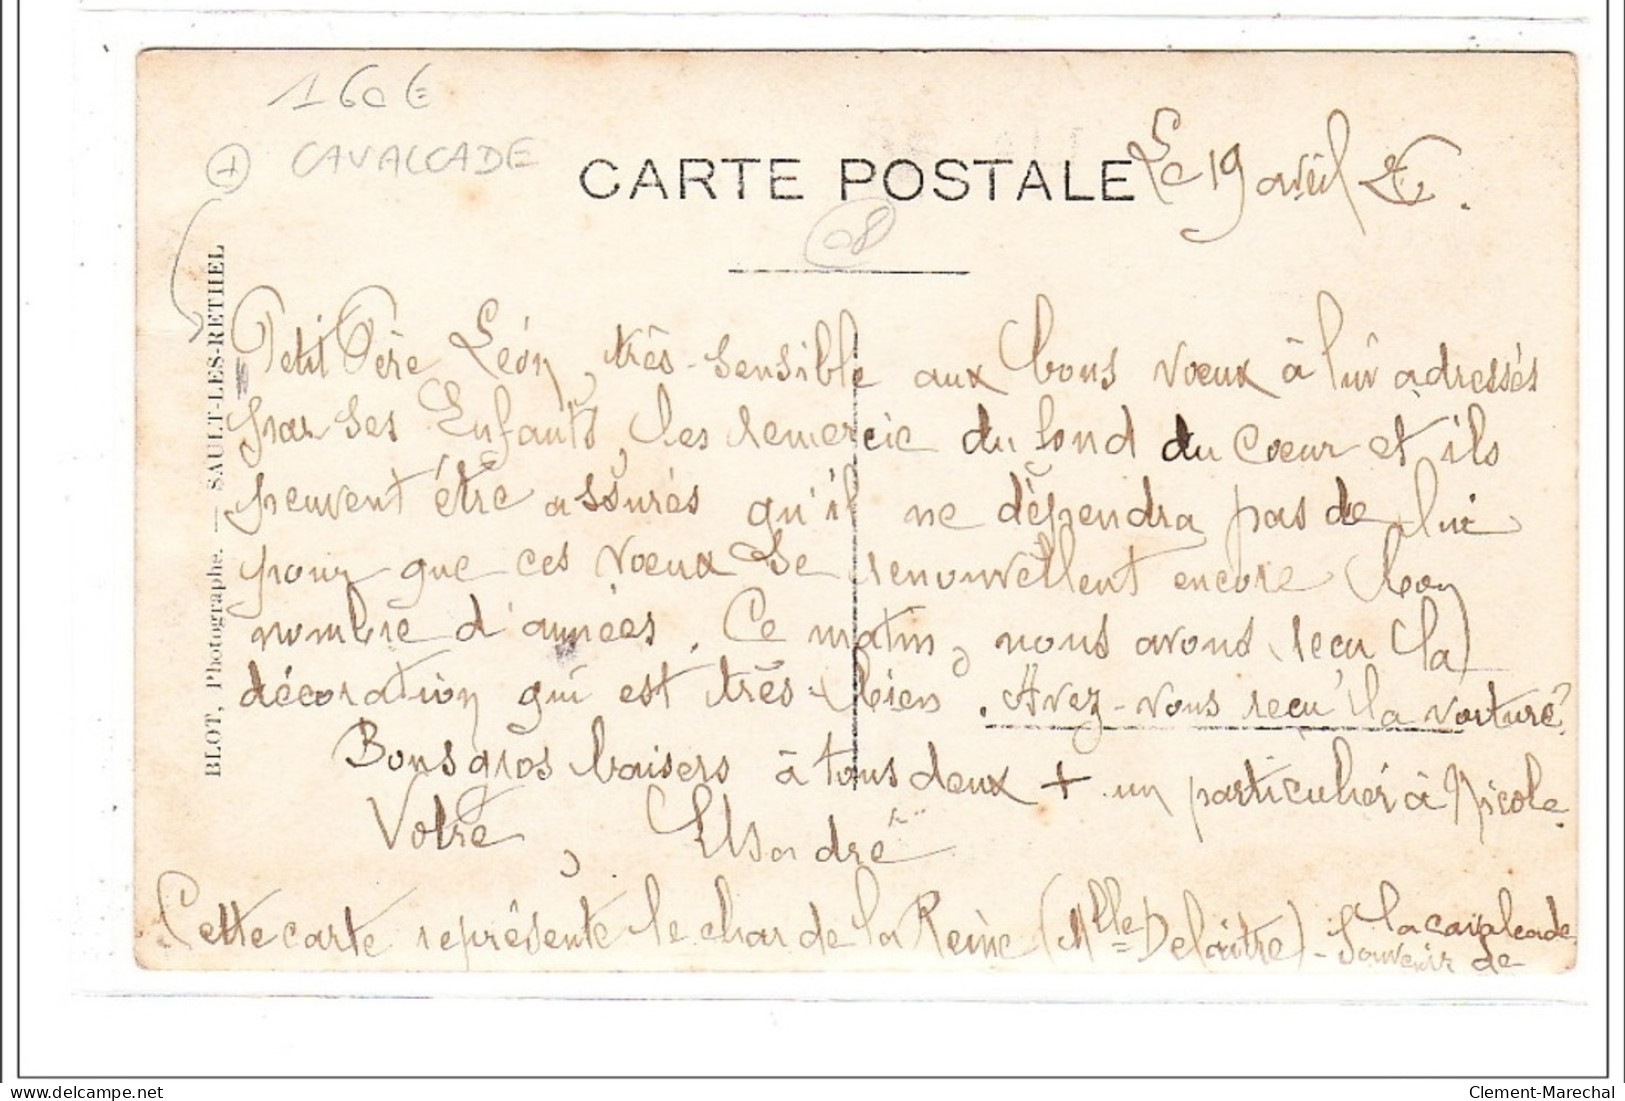 160€
CAVALCADE
CARTE POSTALE
Le 19 avril
08
BLOT, Photographe. — SAULT-LES-RETHEL
Petit Père Léon, très-sensible aux bons vœux à lui adressés
par ses Enfants, les remercie du fond du cœur et ils
peuvent être assurés qu'il ne dépendra pas de lui
pour que ces vœux se renouvellent encore bon
nombre d'années. Ce matin, nous avons recu la
décoration qui est très-bien. Avez-vous recu la voiture?
Bons gros baisers à tous deux + un particulier à Nicole.
Votre,
Cette carte représente le char de la Reine (Mlle Delaitre) - Souvenir de
la cavalcade
Clement-Marechal